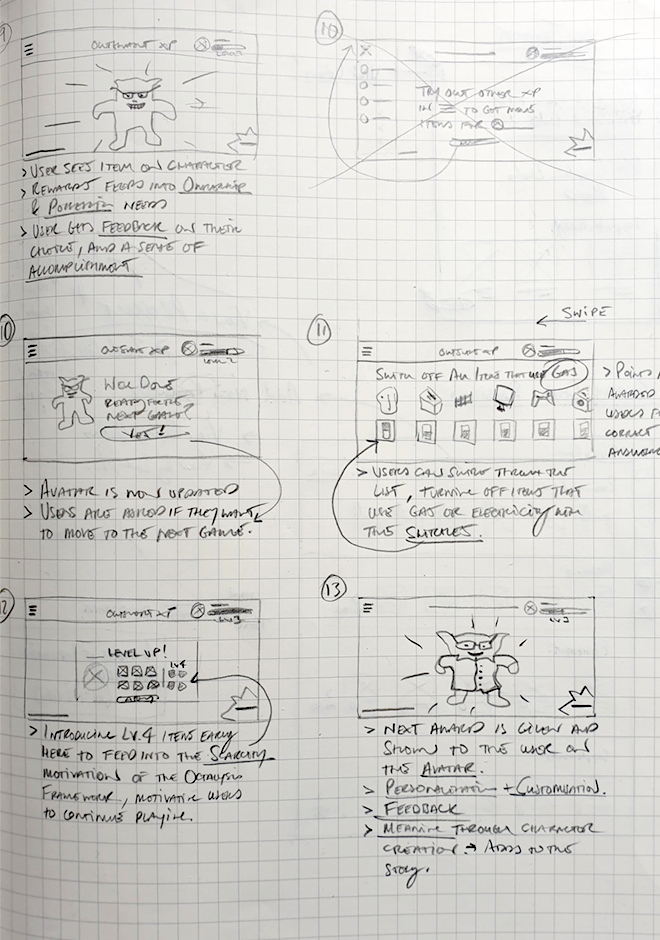 9
> USER SEES ITEM ON CHARACTER
> REWARDS FEEDS INTO OWNERSHIP
& POSSESSION NEEDS
> USER GETS FEEDBACK ON THEIR
CHOICE, AND A SENSE OF
ACCOMPLISHMENT
10
TRY OUT OTHER XP
IN ☰ TO GET MORE
ITEMS FOR
10
XP
WELL DONE
READY FOR THE
NEXT GAME?
YES!
> AVATAR IS NOW UPDATED
> USERS ARE ASKED IF THEY WANT
TO MOVE TO THE NEXT GAME.
11
← SWIPE
SWITCH OFF ALL ITEMS THAT USE GAS
> POINTS
AWARDED
USERS
CORRECT
ANSWERS
> USERS CAN SWIPE THROUGH THE
LIST, TURNING OFF ITEMS THAT
USE GAS OR ELECTRICITY WITH
THE SWITCHES.
12
LV3
LEVEL UP!
LV4
> INTRODUCING LV.4 ITEMS EARLY
HERE TO FEED INTO THE SCARCITY
MOTIVATION OF THE OCTALYSIS
FRAMEWORK, MOTIVATING USERS
TO CONTINUE PLAYING.
13
> NEXT AWARD IS GIVEN AND
SHOWN TO THE USER ON
THE AVATAR.
> PERSONALISATION + CUSTOMISATION.
> FEEDBACK
> MEANING THROUGH CHARACTER
CREATION → ADDS TO THE
STORY.